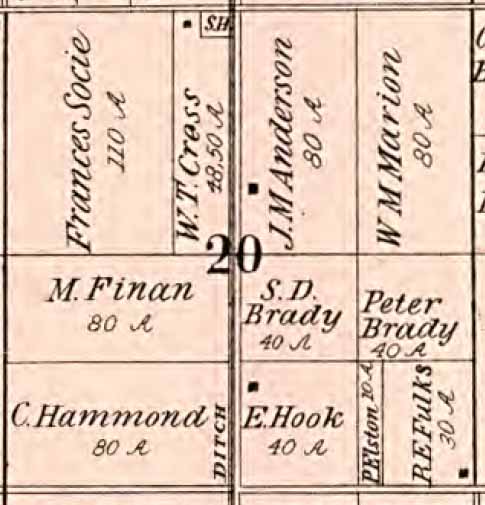 S.H.
Frances Socie
110 A
W.T. Cress
48.50 A
J.M Anderson
80 A
W M Marion
80 A
20
M. Finan
80 A
S. D.
Brady
40 A
Peter
Brady
40 A
C. Hammond
80 A
DITCH
E. Hook
40 A
P Elston 10 A
R E Fulks
30 A